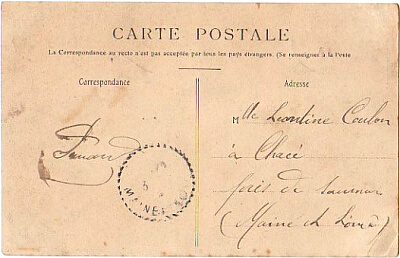 CARTE POSTALE
La Correspondance au recto n'est pas acceptée par tous les pays étrangers. (Se renseigner à la Poste
Correspondance
Adresse
Mlle Léontine Coulon
à Chacé
près de Saumur
(Maine et Loire)
MAINE